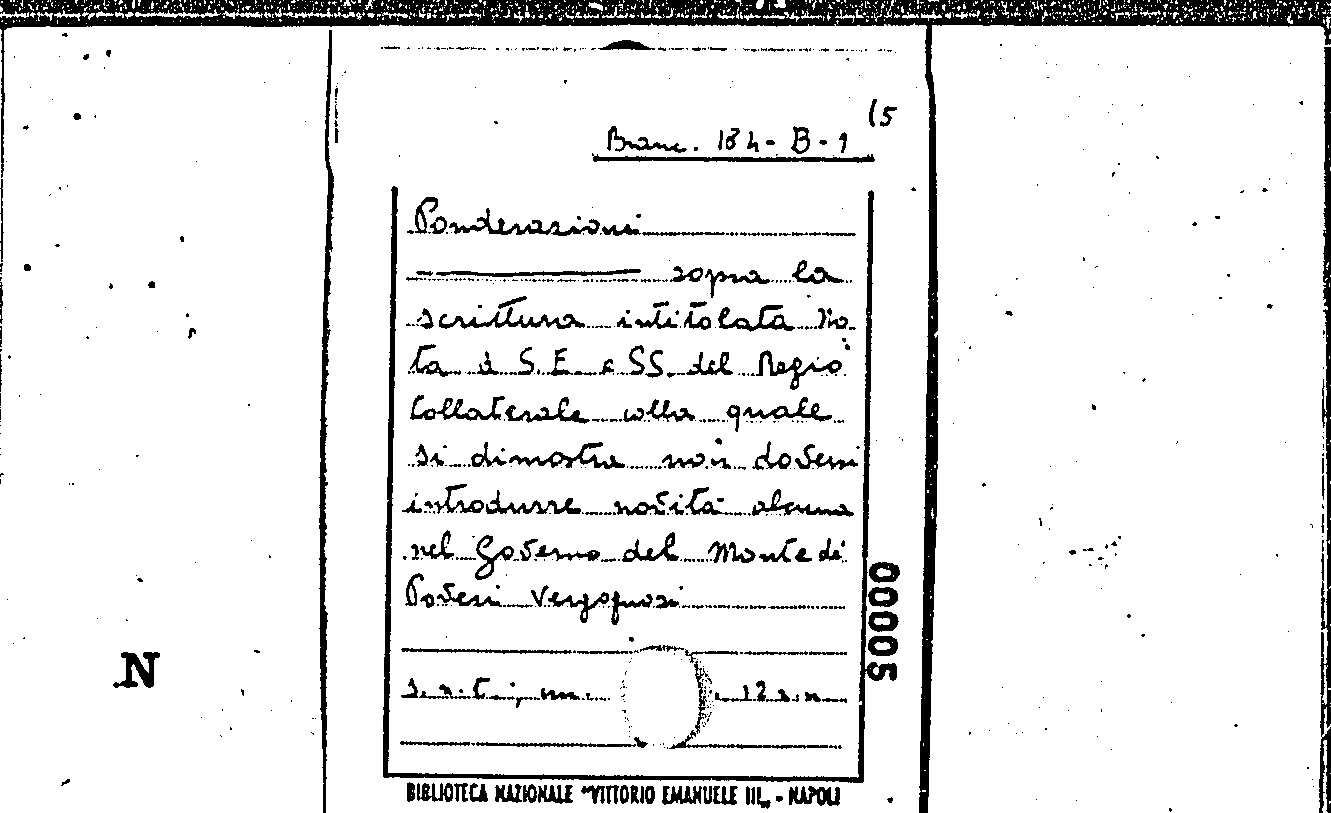 (5
Branc. 184-B-1
Ponderazioni
sopra la
scrittura intitolata No
ta à S.E. e SS. del Regio
Collaterale colla quale
si dimostra non doversi
introdurre novità alcuna
nel Governo del Monte de'
Poveri Vergognosi
s.n.t.; 12 s.n.
00005
N
BIBLIOTECA NAZIONALE "VITTORIO EMANUELE III„ - NAPOLI